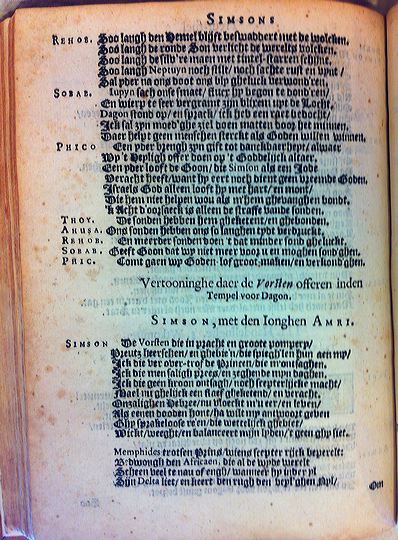 SIMSONS
REHOB. Soo langh den Hemel blijft beswaddert met de wolcken.
Soo langh de ronde Son verlicht de werelts volcken.
Soo langh de silv're maen met tintel-starren schijnt.
Soo langh Neptuyn noch stilt, noch sachte rust en
Sal yder na ons doot ons vly gheluck verwond'ren.
SOBAB. Iupyn sach onse smaet, fluer hy begon te dond'ren,
En wierp te seer vergramt zyn blixem upt de Locht.
Dagon stond op, en sprack, ick heb een raet bedocht,
Ick sal zyn moed'ghe ziel doen matten door het minnen.
Daer helpt geen menschen sterckt als Goden willen winnen.
PHICO Een yder brengh zyn gift tot danckbaerheyt, alwaer
Wy 't Heyligh offer doen op 't Goddelijck altaer.
Een yder looft de Goon, die Simson als een Jode
Veracht heeft, want hy eert noch dient geen vreemde Goden.
Israels God alleen looft hy met hart, en mont,
Die hem niet helpen wou als m'hem ghevanghen bondt.
'k Acht d'oorsaeck is alleen de straffe vande sonden.
THOY. De sonden hebben hem gheketent, en ghebonden.
AHUSA. Ons sonden hebben ons so langhen tydt verdruckt.
REHOB. En meerder sonden doen 't dat minder sond gheluckt.
SOBAB. Geeft Goon dat wy niet meer voor u en moghen sond'ghen.
PHIC. Comt gaen wy Goden-lof groot maken, en verkond'ghen.
Vertooninghe daer de Vorsten offeren inden
Tempel voor Dagon.
SIMSON, met den Ionghen AMRI.
SIMSON De Vorsten die in pracht en groote pomperp,
Preutz heerschen, en ghebie'n, die spiegh'len hun aen mp,
Ick die ver over-trof de Princen, die m'ontsaghen.
Ick die menschlijh prees, en zeghende mijn daghen.
Ick die geen kroon ontsagh, noch scepterlijcke macht,
Wael nu ghelijck een slaef gheketend, en veracht.
Onzalighen Hebree, nu vloeckt m'u eer, en leven,
Als eenen dooden hont, ha wilt my antwoort geven
Ghy sprakeloose re'en, die wettelijck ghebiet,
Wickt, weeght, en balanceert mijn lyden, t'geen ghy siet.
Memphides trotsen Prins, wiens scepter rijck bepereIt:
B'dwongh den Africaen, die al de wyde werelt
Scheen veel te nau of engh, wanneer hy inder yl
Sijn Delta liet, en keert den rugh den